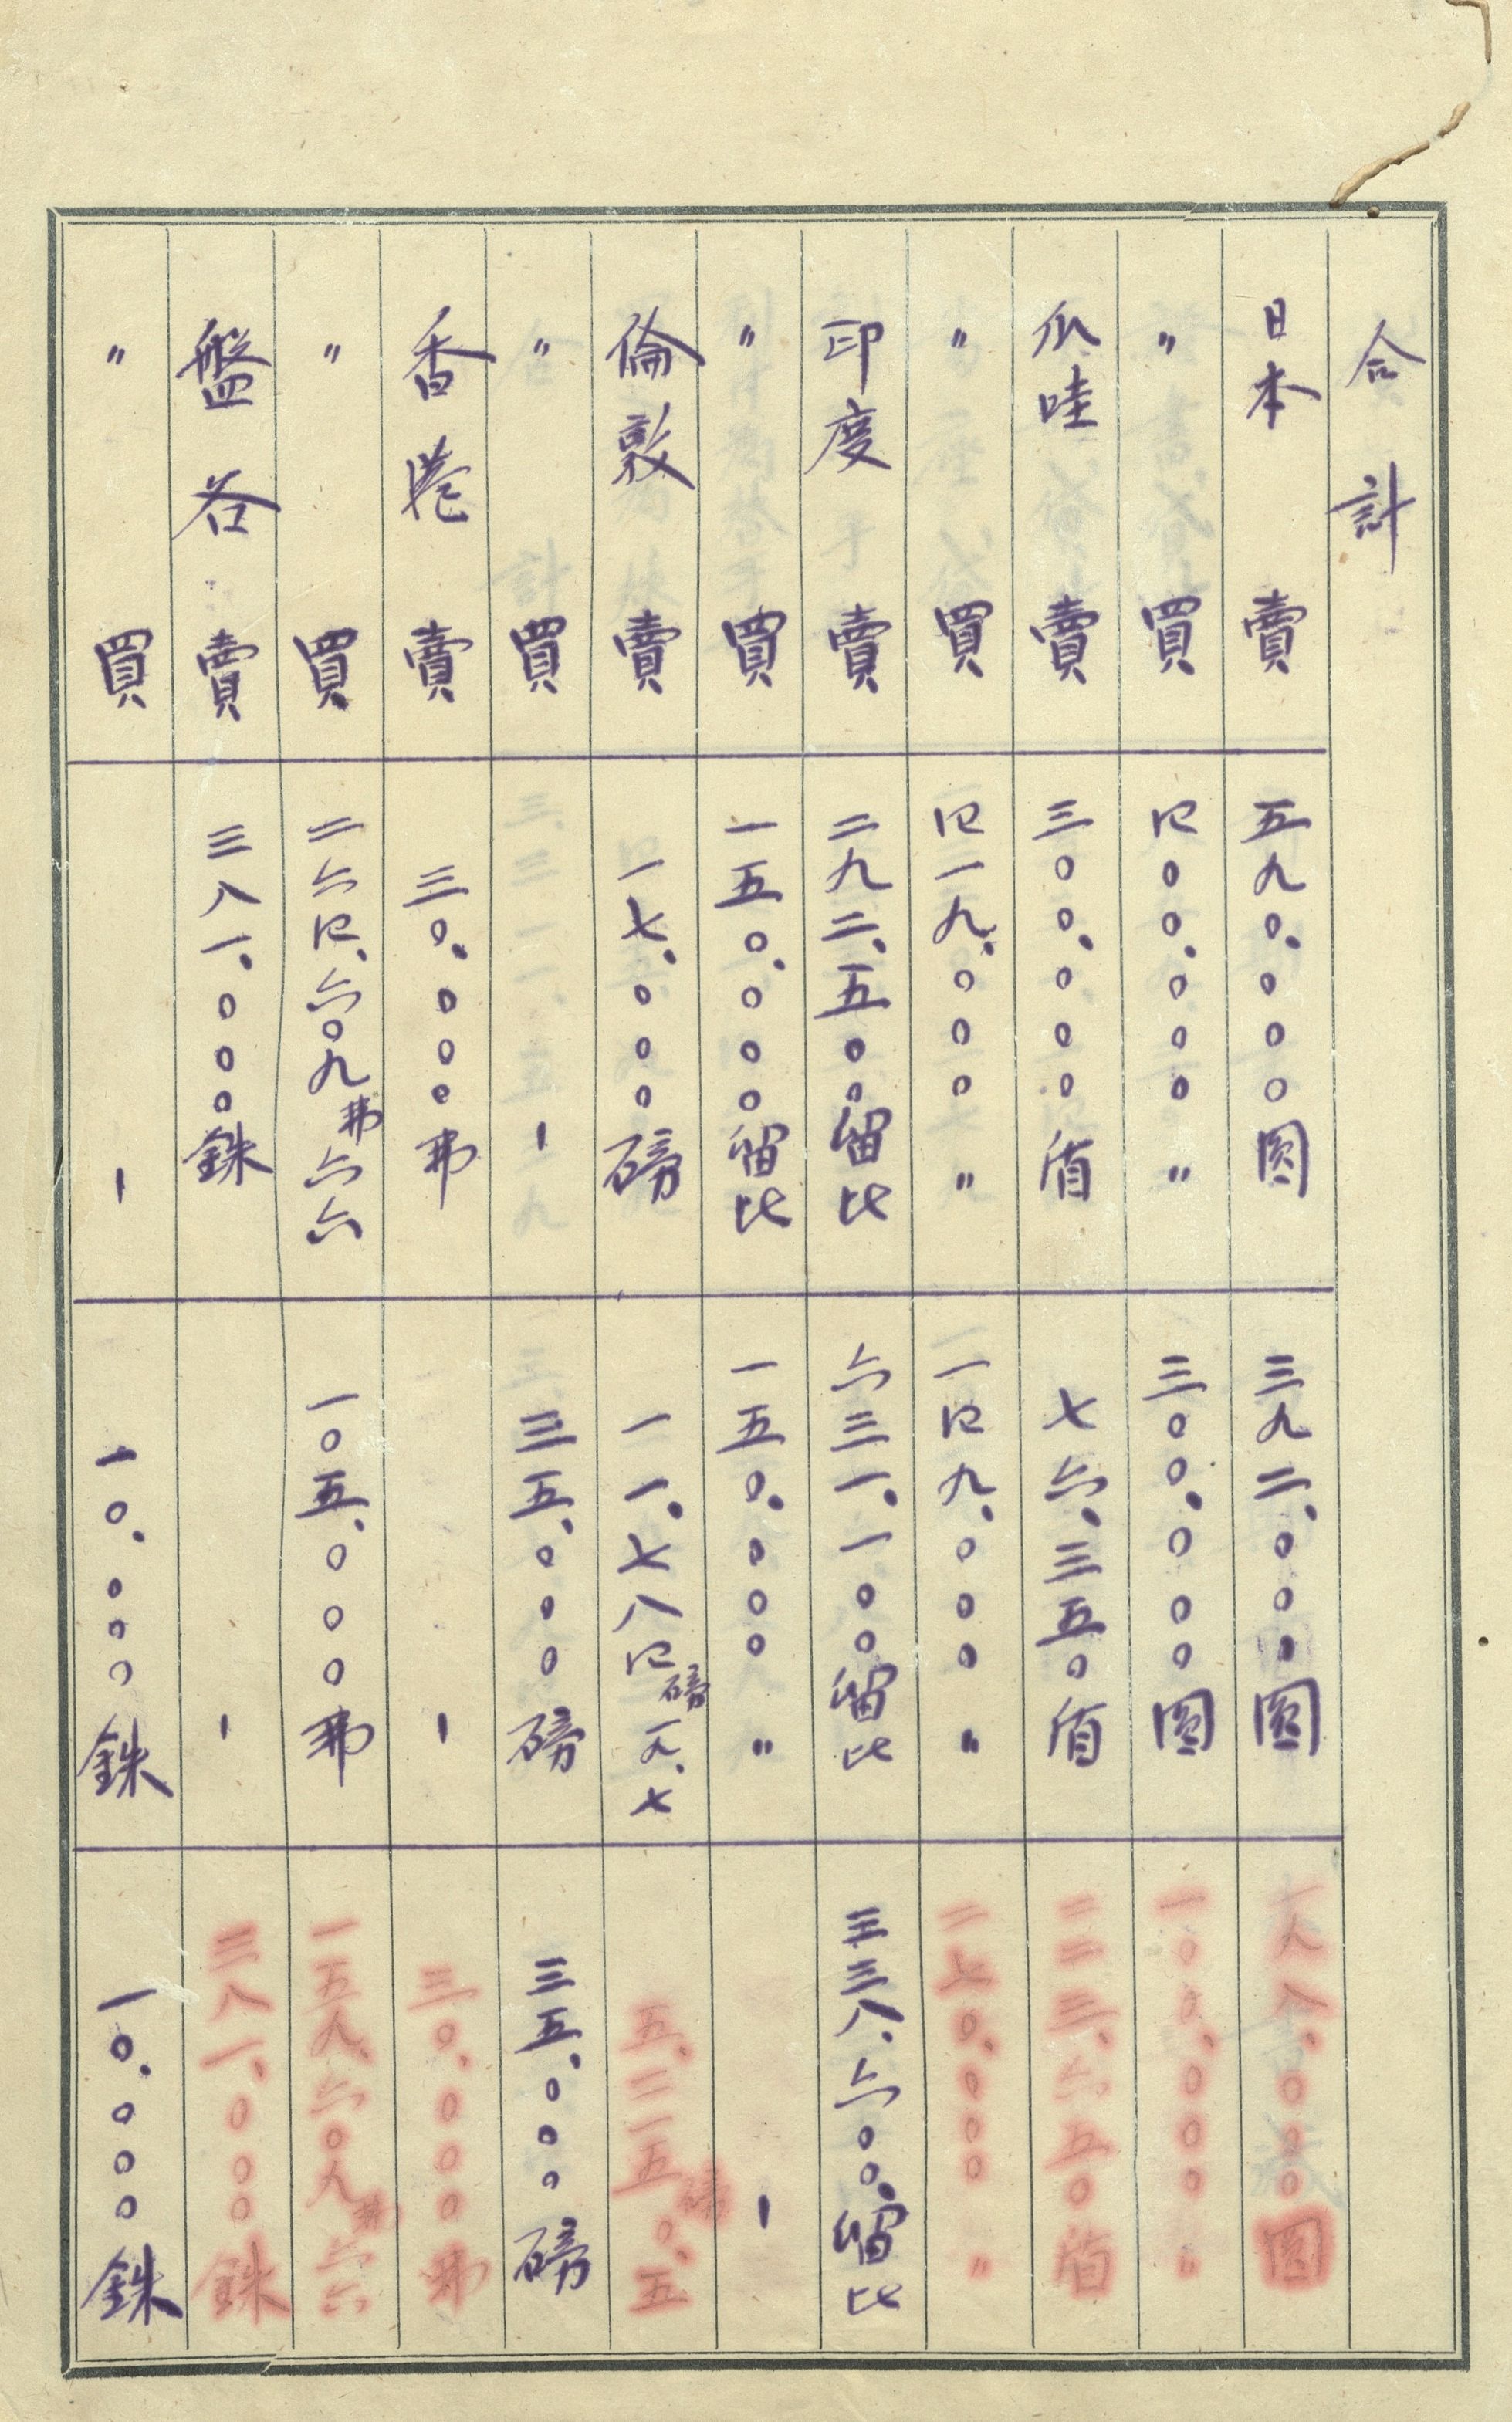 合計
日本 賣 五九〇.〇〇〇圓 三九二.〇〇〇圓 一九八.〇〇〇圓
〃 買 四〇〇.〇〇〇〃 三〇〇.〇〇〇圓 一〇〇.〇〇〇〃
爪哇 賣 三〇〇.〇〇〇盾 七六.三五〇盾 二二三.六五〇盾
〃 買 四一九.〇〇〇〃 一四九.〇〇〇〃 二七〇.〇〇〇〃
印度 賣 二九二.五〇〇.留比 六三一.一〇〇留比 三三八.六〇〇.留比
〃 買 一五〇.〇〇〇留比 一五〇.〇〇〇〃 -
倫敦 賣 一七.〇〇〇磅 一一.七八四磅一九.七 五.二一五磅〇.五
〃 買 - 三五.〇〇〇磅 三五.〇〇〇磅
香港 賣 三〇.〇〇〇弗 - 三〇.〇〇〇弗
〃 買 二六四.六〇九弗六六 一〇五.〇〇〇弗 一五九.六〇九弗六六
盤谷 賣 三八一.〇〇〇銖 - 三八一.〇〇〇銖
〃 買 - 一〇.〇〇〇銖 一〇.〇〇〇銖